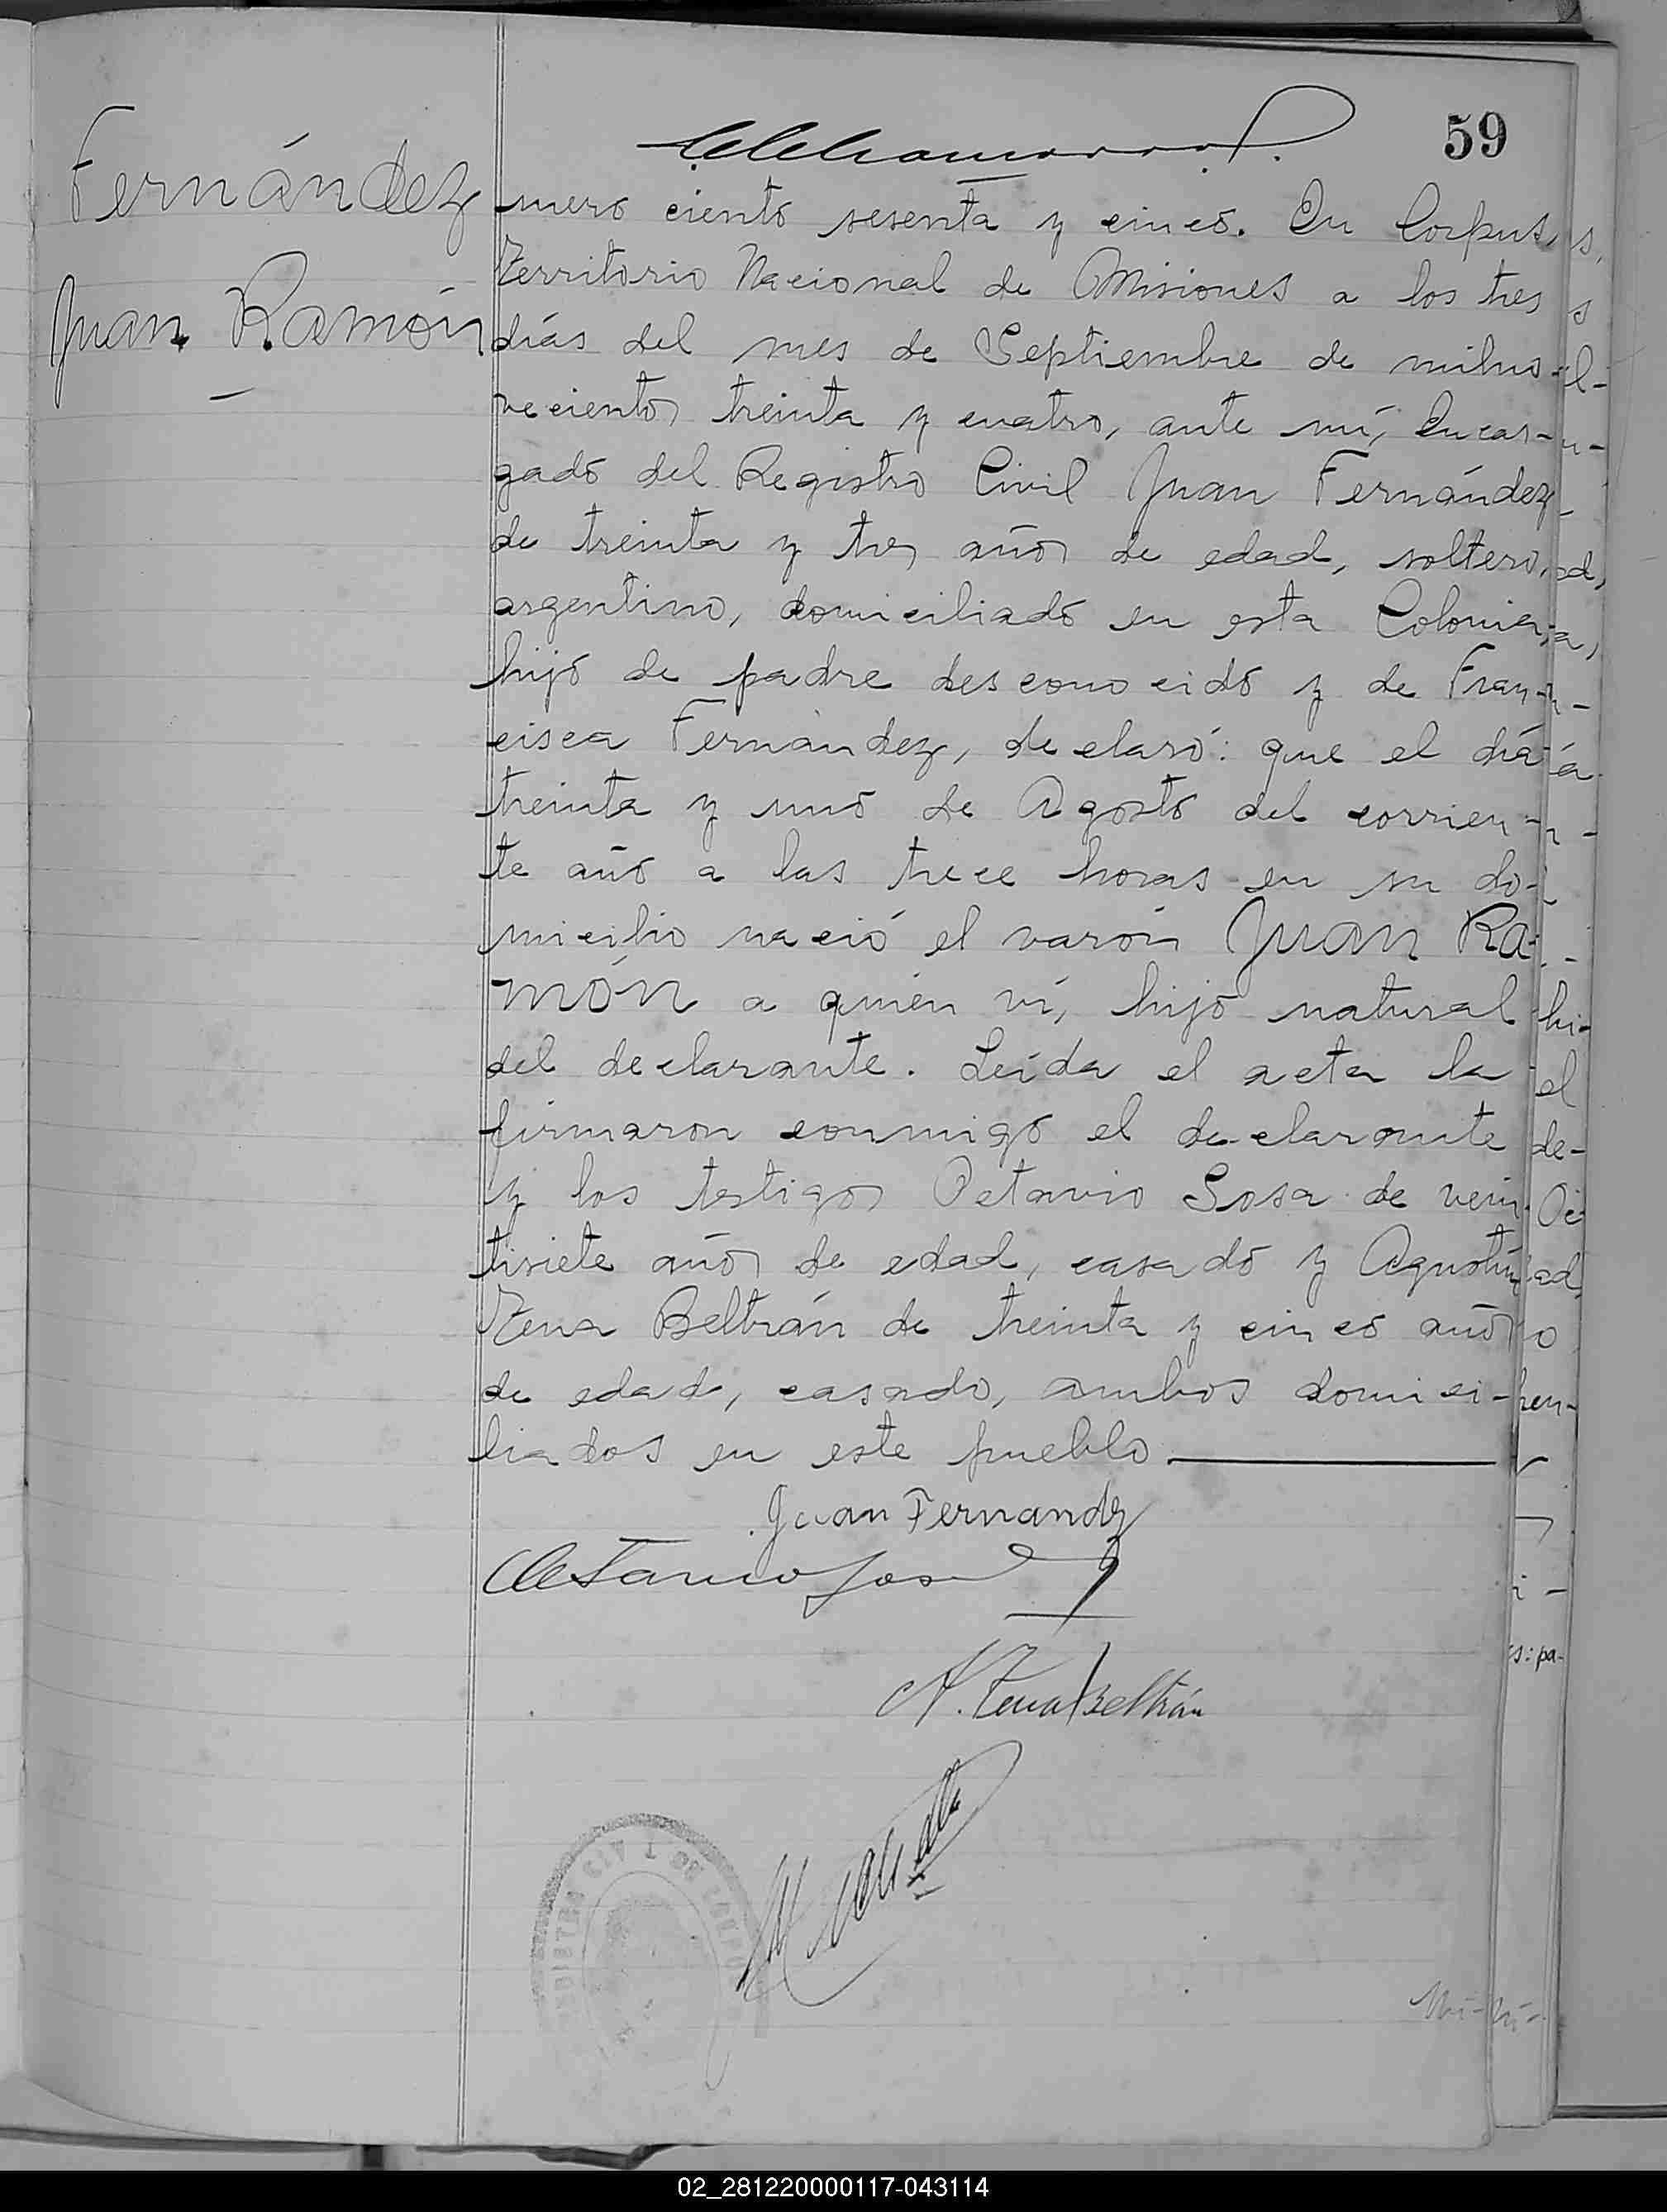 59
Fernández
Juan Ramón
mero ciento sesenta y cinco. En Corpus,
Territorio Nacional de Misiones a los tres
días del mes de Septiembre de milno-
vecientos treinta y cuatro, ante mí, Encar-
gado del Registro Civil Juan Fernández
de treinta y tres años de edad, soltero,
argentino, domiciliado en esta Colonia,
hijo de padre desconocido y de Fran-
cisca Fernández, declaró: que el día
treinta y uno de Agosto del corrien-
te año a las trece horas en su do-
micilio nació el varón Juan Ra-
món a quien ví, hijo natural
del declarante. Leída el acta la
firmaron conmigo el declarante
y los testigos Octavio Sosa de vein-
tisiete años de edad, casado y Agustín
Tena Beltrán de treinta y cinco años
de edad, casado, ambos domici-
liados en este pueblo
Juan Fernandz
Octavio Sosa
A. Tena Beltrán
Nú-
02_281220000117-043114